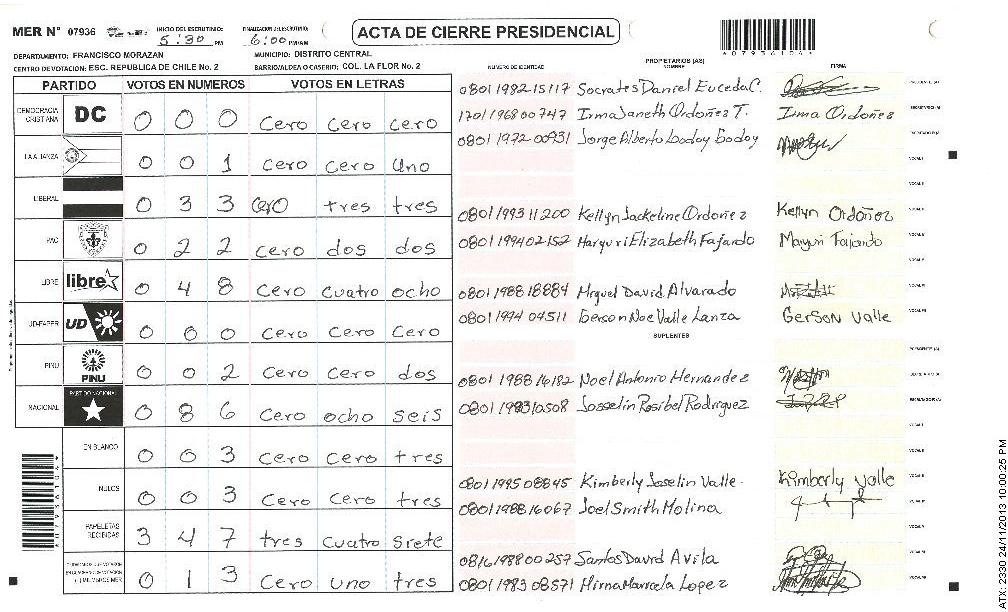 MER Nº 07936
INICIO DEL ESCRUTINIO:
5:30 PM
FINALIZACION DEL ESCRUTINIO:
6:00 PM/AM
ACTA DE CIERRE PRESIDENCIAL
DEPARTAMENTO: FRANCISCO MORAZAN
MUNICIPIO: DISTRITO CENTRAL
CENTRO DE VOTACION: ESC. REPUBLICA DE CHILE No. 2
BARRIO/ALDEA O CASERIO: COL. LA FLOR No. 2
PARTIDO VOTOS EN NUMEROS VOTOS EN LETRAS
DEMOCRACIA CRISTIANA DC 0 0 0 Cero Cero Cero
LA ALIANZA 0 0 1 Cero Cero Uno
LIBERAL 0 3 3 Cero tres tres
PAC 0 2 2 Cero dos dos
LIBRE libre 0 4 8 Cero Cuatro ocho
UD-FAPER UD 0 0 0 Cero Cero Cero
PINU PINU 0 0 2 Cero Cero dos
NACIONAL PARTIDO NACIONAL 0 8 6 Cero ocho Seis
EN BLANCO 0 0 3 Cero Cero tres
NULOS 0 0 3 Cero Cero tres
PAPELETAS RECIBIDAS 3 4 7 tres Cuatro Siete
0 1 3 Cero uno tres
NUMERO DE IDENTIDAD
PROPIETARIOS (AS)
NOMBRE
FIRMA
*07936104*
0801 1982 15117 Socrates Daniel Euceda C.
1701 1968 00747 Irma Janeth Ordoñez T. Irma Ordoñez
0801 1972 00931 Jorge Alberto Godoy Godoy
0801 1993 11200 Kellyn Jackeline Ordoñez Kellyn Ordoñez
0801 1994 02152 Elizabeth Fajardo Fajardo
0801 1988 18884 Miguel David Alvarado
0801 1994 04511 Gerson Noe Valle Lanza Gerson Valle
SUPLENTES
0801 1988 16182 Noel Antonio Hernandez
0801 1983 10508 Josselin Rosibel Rodriguez
0801 1995 08845 Kimberly Joselin Valle Kimberly Valle
0801 1988 16067 Joel Smith Molina
0816 1988 00257 Santos David Avila
0801 1983 08571 Mirna Marcela Lopez
ATX: 2330 24/11/2013 10:00:25 PM